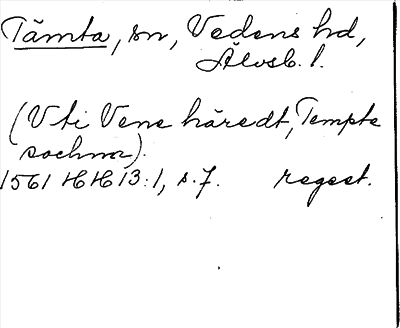 Tämta, sn, Vedens hd,
Älvsb. l.
(Uti Vene häredt, Tempte
sochnn).
1561 HH 13:1, s. 7. regest.